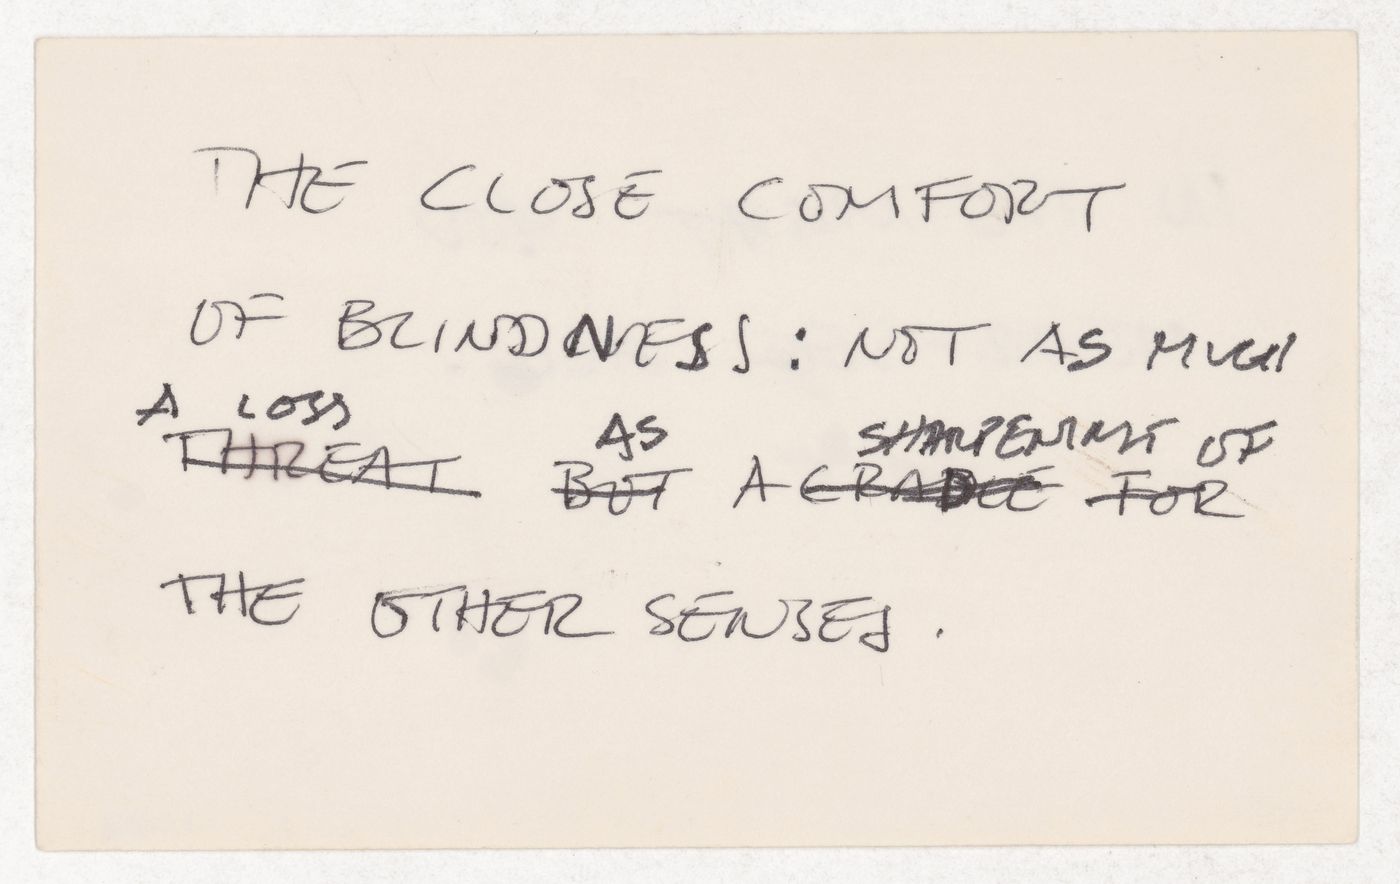 THE CLOSE COMFORT
OF BLINDNESS: NOT AS MUCH
A LOSS AS SHARPENING OF
THREAT BUT A CRADLE FOR
THE OTHER SENSES.